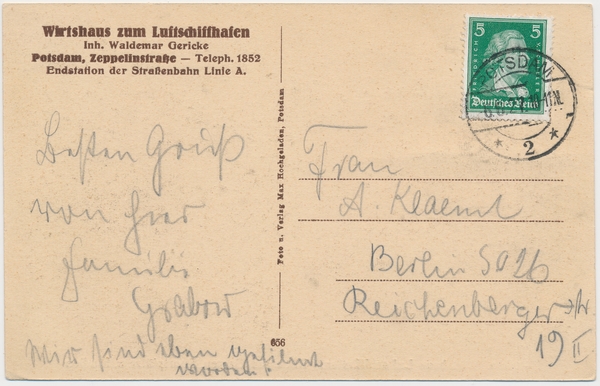 Wirtshaus zum Luftschiffhafen
Inh. Waldemar Gericke
Potsdam, Zeppelinstraße — Teleph. 1852
Endstation der Straßenbahn Linie A.
Besten Gruß
von hier
Familie
Grabow
Wir sind eben gefilmt
worden!
Foto u. Verlag Max Hochgeladen, Potsdam
656
5 5
FRIEDRICH
Deutsches Reich
POTSDAM
* 2 *
Frau
A. Klaemt
Berlin SO26
Reichenberger Str.
19 II